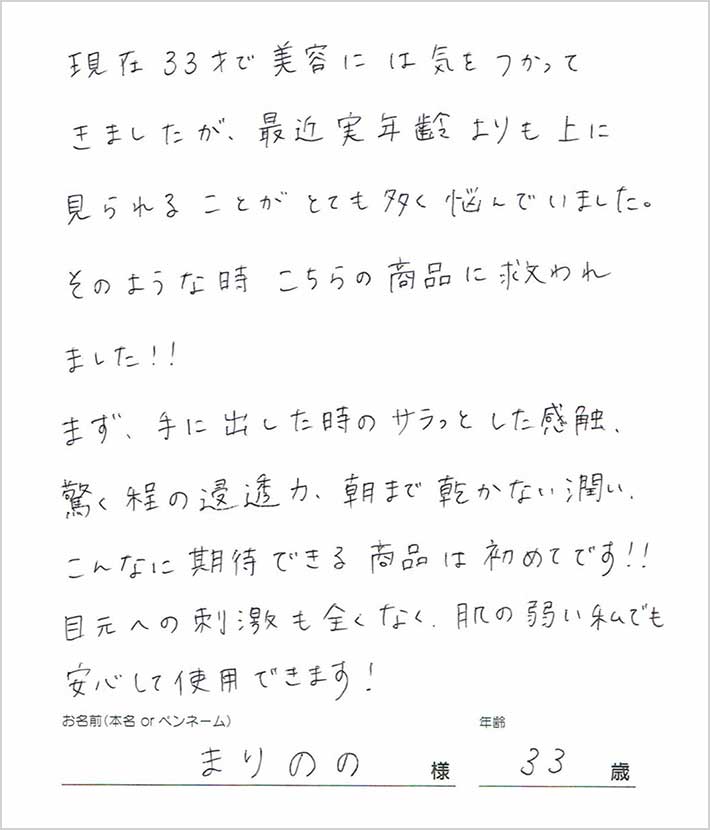 現在33才で美容には気をつかって
きましたが、最近実年齢よりも上に
見られることがとても多く悩んでいました。
そのような時こちらの商品に救われ
ました!!
まず、手に出した時のサラっとした感触、
驚く程の浸透力、朝まで乾かない潤い、
こんなに期待できる商品は初めてです!!
目元への刺激も全くなく、肌の弱い私でも
安心して使用できます!
お名前(本名 or ペンネーム) 年齢
まりのの 様 33 歳